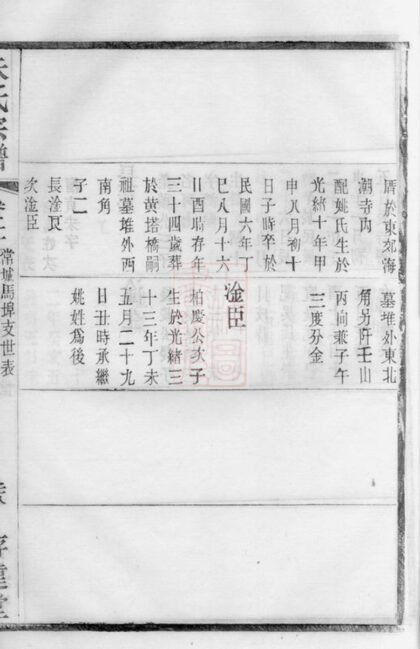 厝於東郊海
潮寺內
配姚氏生於
光緒十年甲
申八月初十
日子時卒於
民國六年丁
巳八月十六
日酉時春年
三十四歲葬
於黃塔橋嗣
祖墓堆外西
南角
子二
長淦艮
次淦臣
墓堆外東北
角另阡壬山
丙向兼子午
三度分金
淦臣
柏慶公次子
生於光緒三
十三年丁未
五月二十九
日丑時承繼
姚姓為後
氏宗譜
常城馬埠支世表